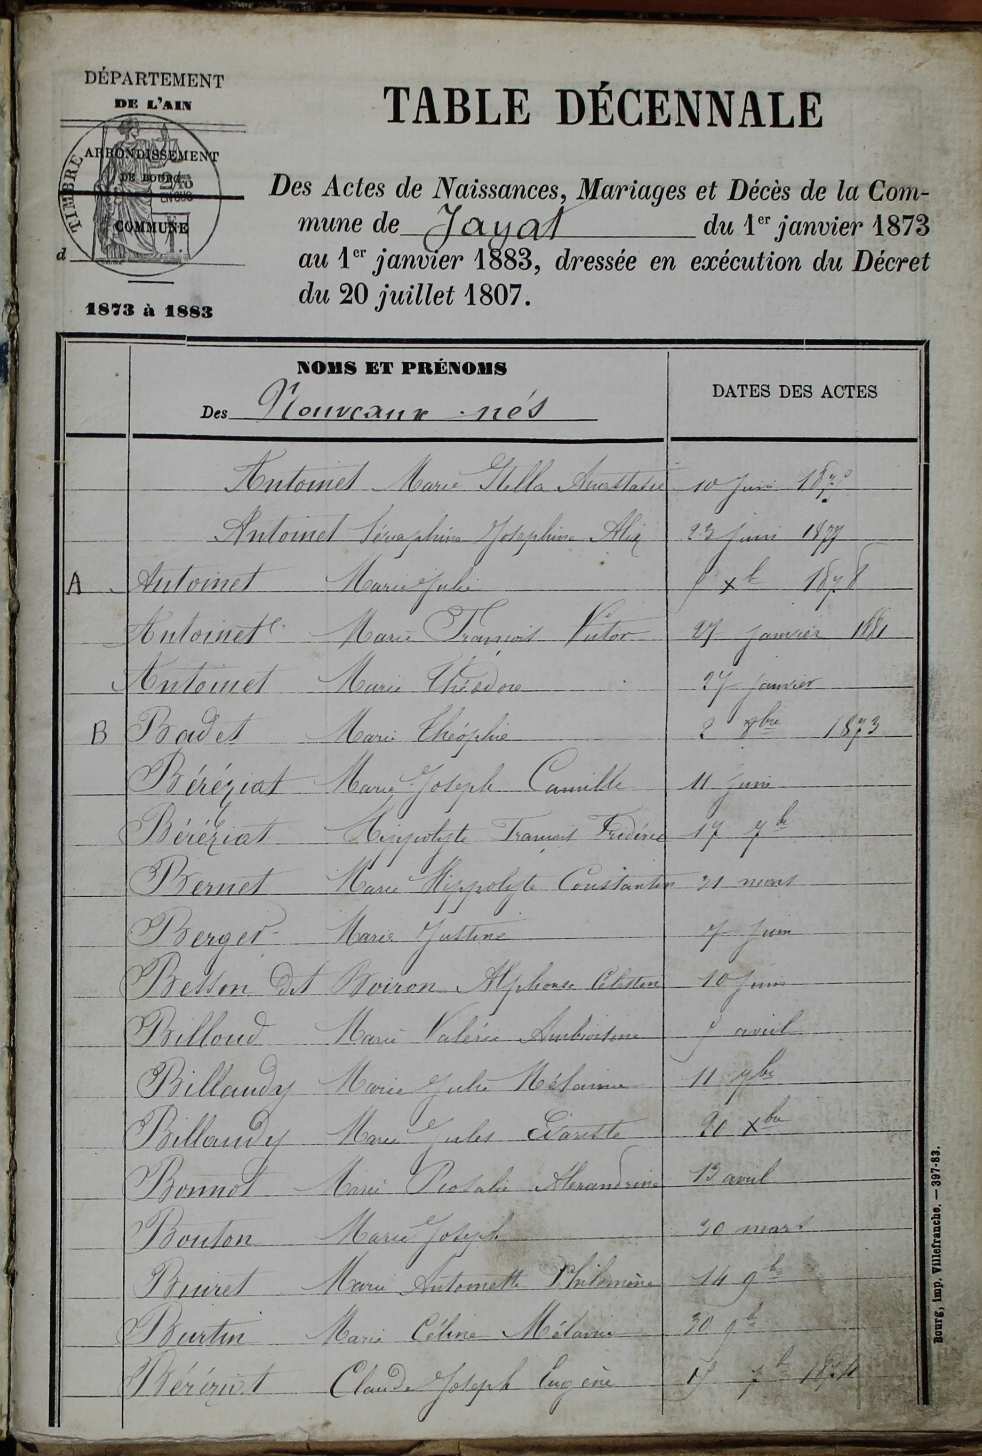 DÉPARTEMENT
DE L'AIN
TIMBRE
ARRONDISSEMENT
DE BOURG
COMMUNE
d
1873 à 1883
TABLE DÉCENNALE
Des Actes de Naissances, Mariages et Décès de la Com-
mune de Jayat du 1er janvier 1873
au 1er janvier 1883, dressée en exécution du Décret
du 20 juillet 1807.
NOMS ET PRÉNOMS
Des Nouveaux-nés
DATES DES ACTES
Antoinet Marie Stella Anastasie 10 juin
Antoinet Séraphine Joséphine Alix 23 juin 1877
A Antoinet Marie Julie xbre 1878
Antoinet Marie François Victor 27 janvier 1881
Antoinet Marie Théodore 27 janvier
B Badet Marie Théophie 2 xbre 1873
Béréziat Marie Joseph Camille 11 juin
Béréziat Hippolyte François Frédéric 17 7bre
Bernet Marie Hippolyte Constantin 31 mars
Berger Marie Justine 7 juin
Besson dit Boiron Alphonse Célestin 10 juin
Billoud Marie Valérie Ambroisine 9 avril
Billaudy Marie Julie Mélanie 11 7bre
Billaudy Marie Jules Évariste 30 xbre
Bonnot Marie Rosalie Alexandrine 13 avril
Bouton Marie Joseph 30 mars
Buiret Marie Antoinette Philomène 14 9bre
Burtin Marie Céline Mélanie 30 9bre
Béréziat Claude Joseph Eugène 7bre 1874
Bourg, imp. Villefranche. — 397-83.